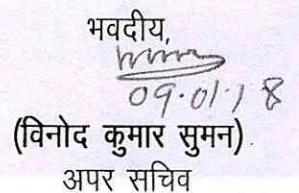 भवदीय,
09.01.18
(विनोद कुमार सुमन)
अपर सचिव